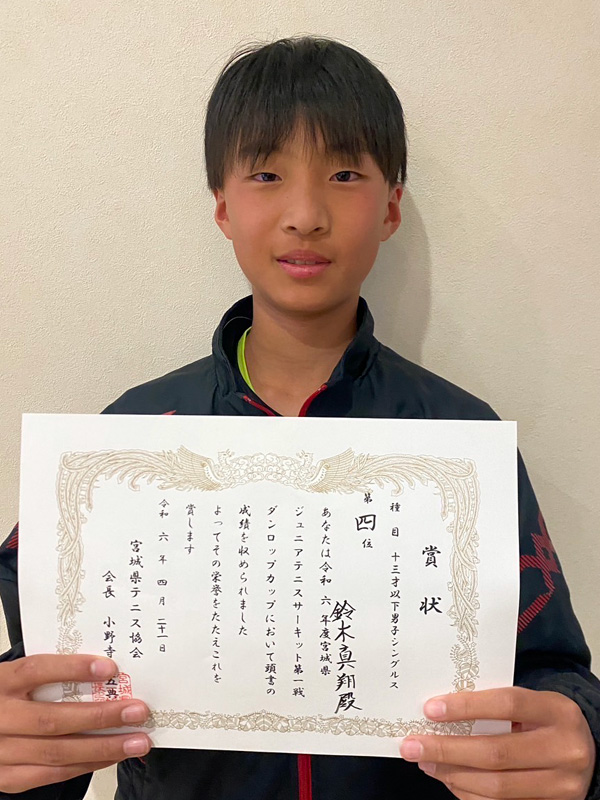 賞状
種目 十三才以下男子シングルス
第四位
鈴木真翔殿
あなたは令和六年度宮城県
ジュニアテニスサーキット第一戦
ダンロップカップにおいて頭書の
成績を収められました
よってその栄誉をたたえこれを
賞します
令和六年四月二十一日
宮城県テニス協会
会長 小野寺